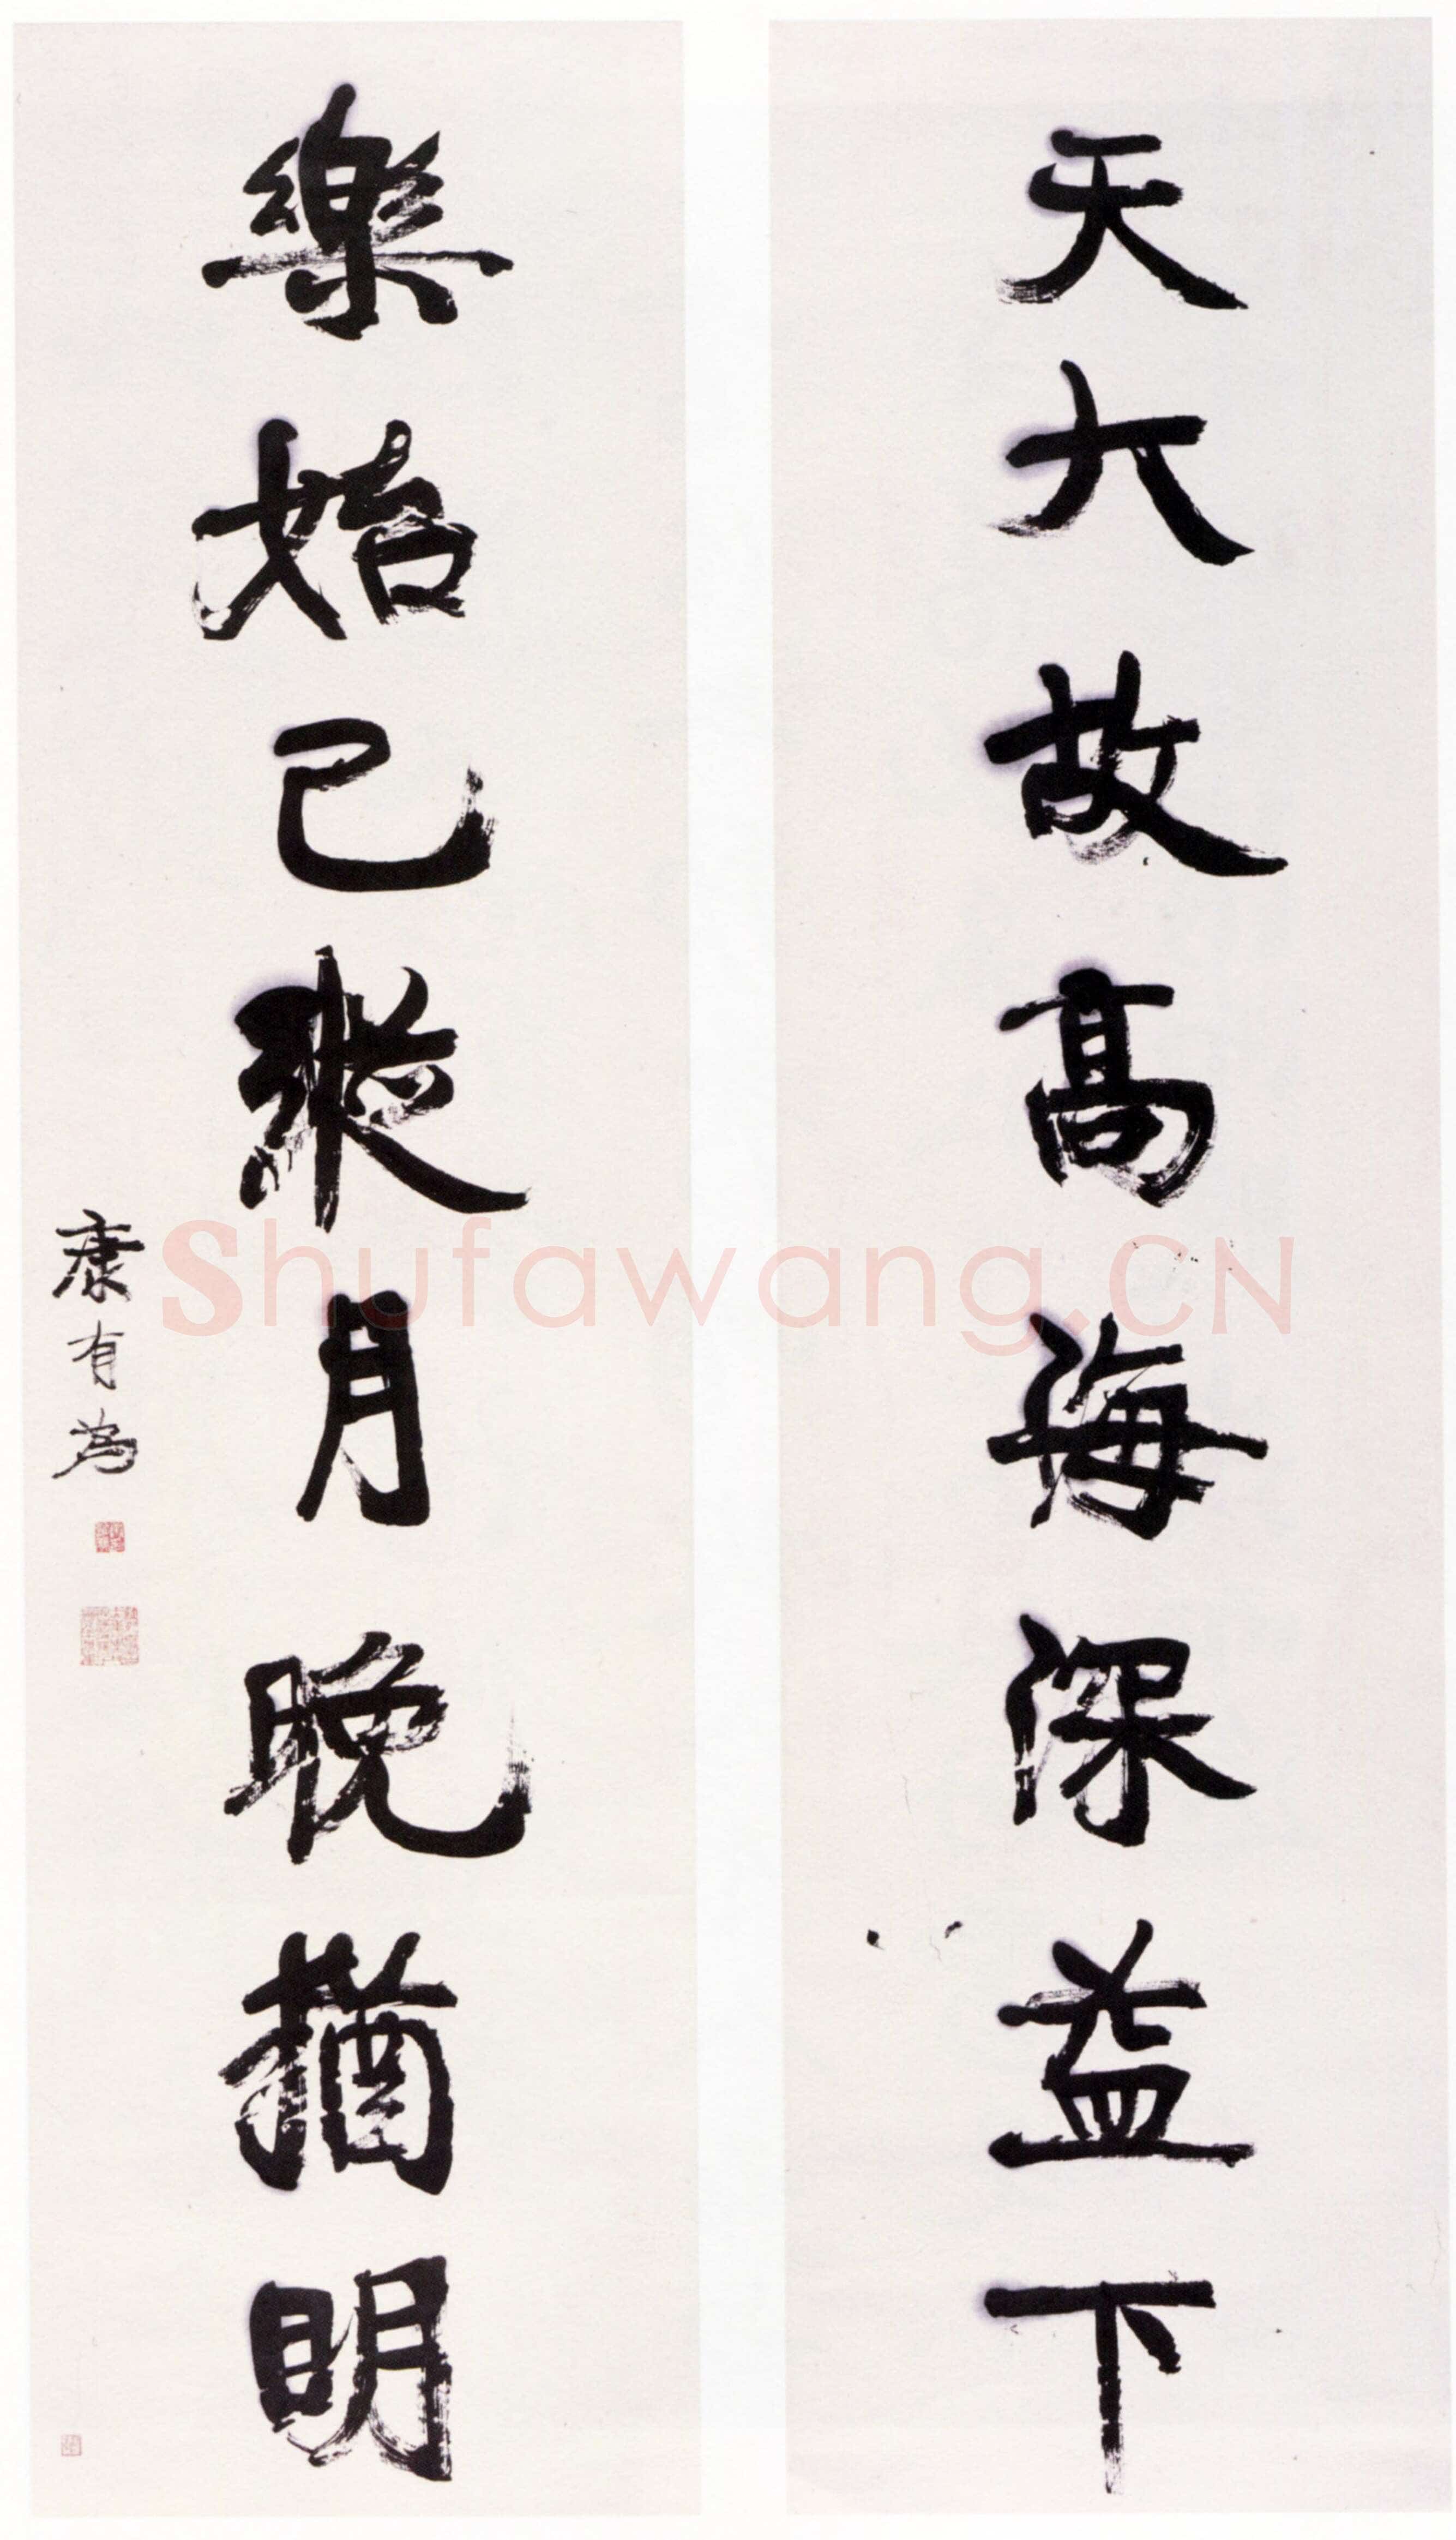 天大故高海深益下
樂始已縱月晚猶明
康有為
Shufawang.CN